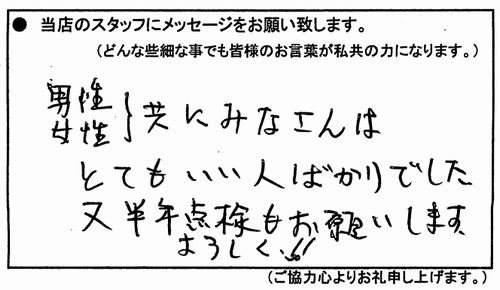 ● 当店のスタッフにメッセージをお願い致します。
(どんな些細な事でも皆様のお言葉が私共の力になります。)
男性
女性 } 共にみなさんは
とてもいい人ばかりでした
又半年点検もお願いします
よろしく!!
(ご協力心よりお礼申し上げます。)